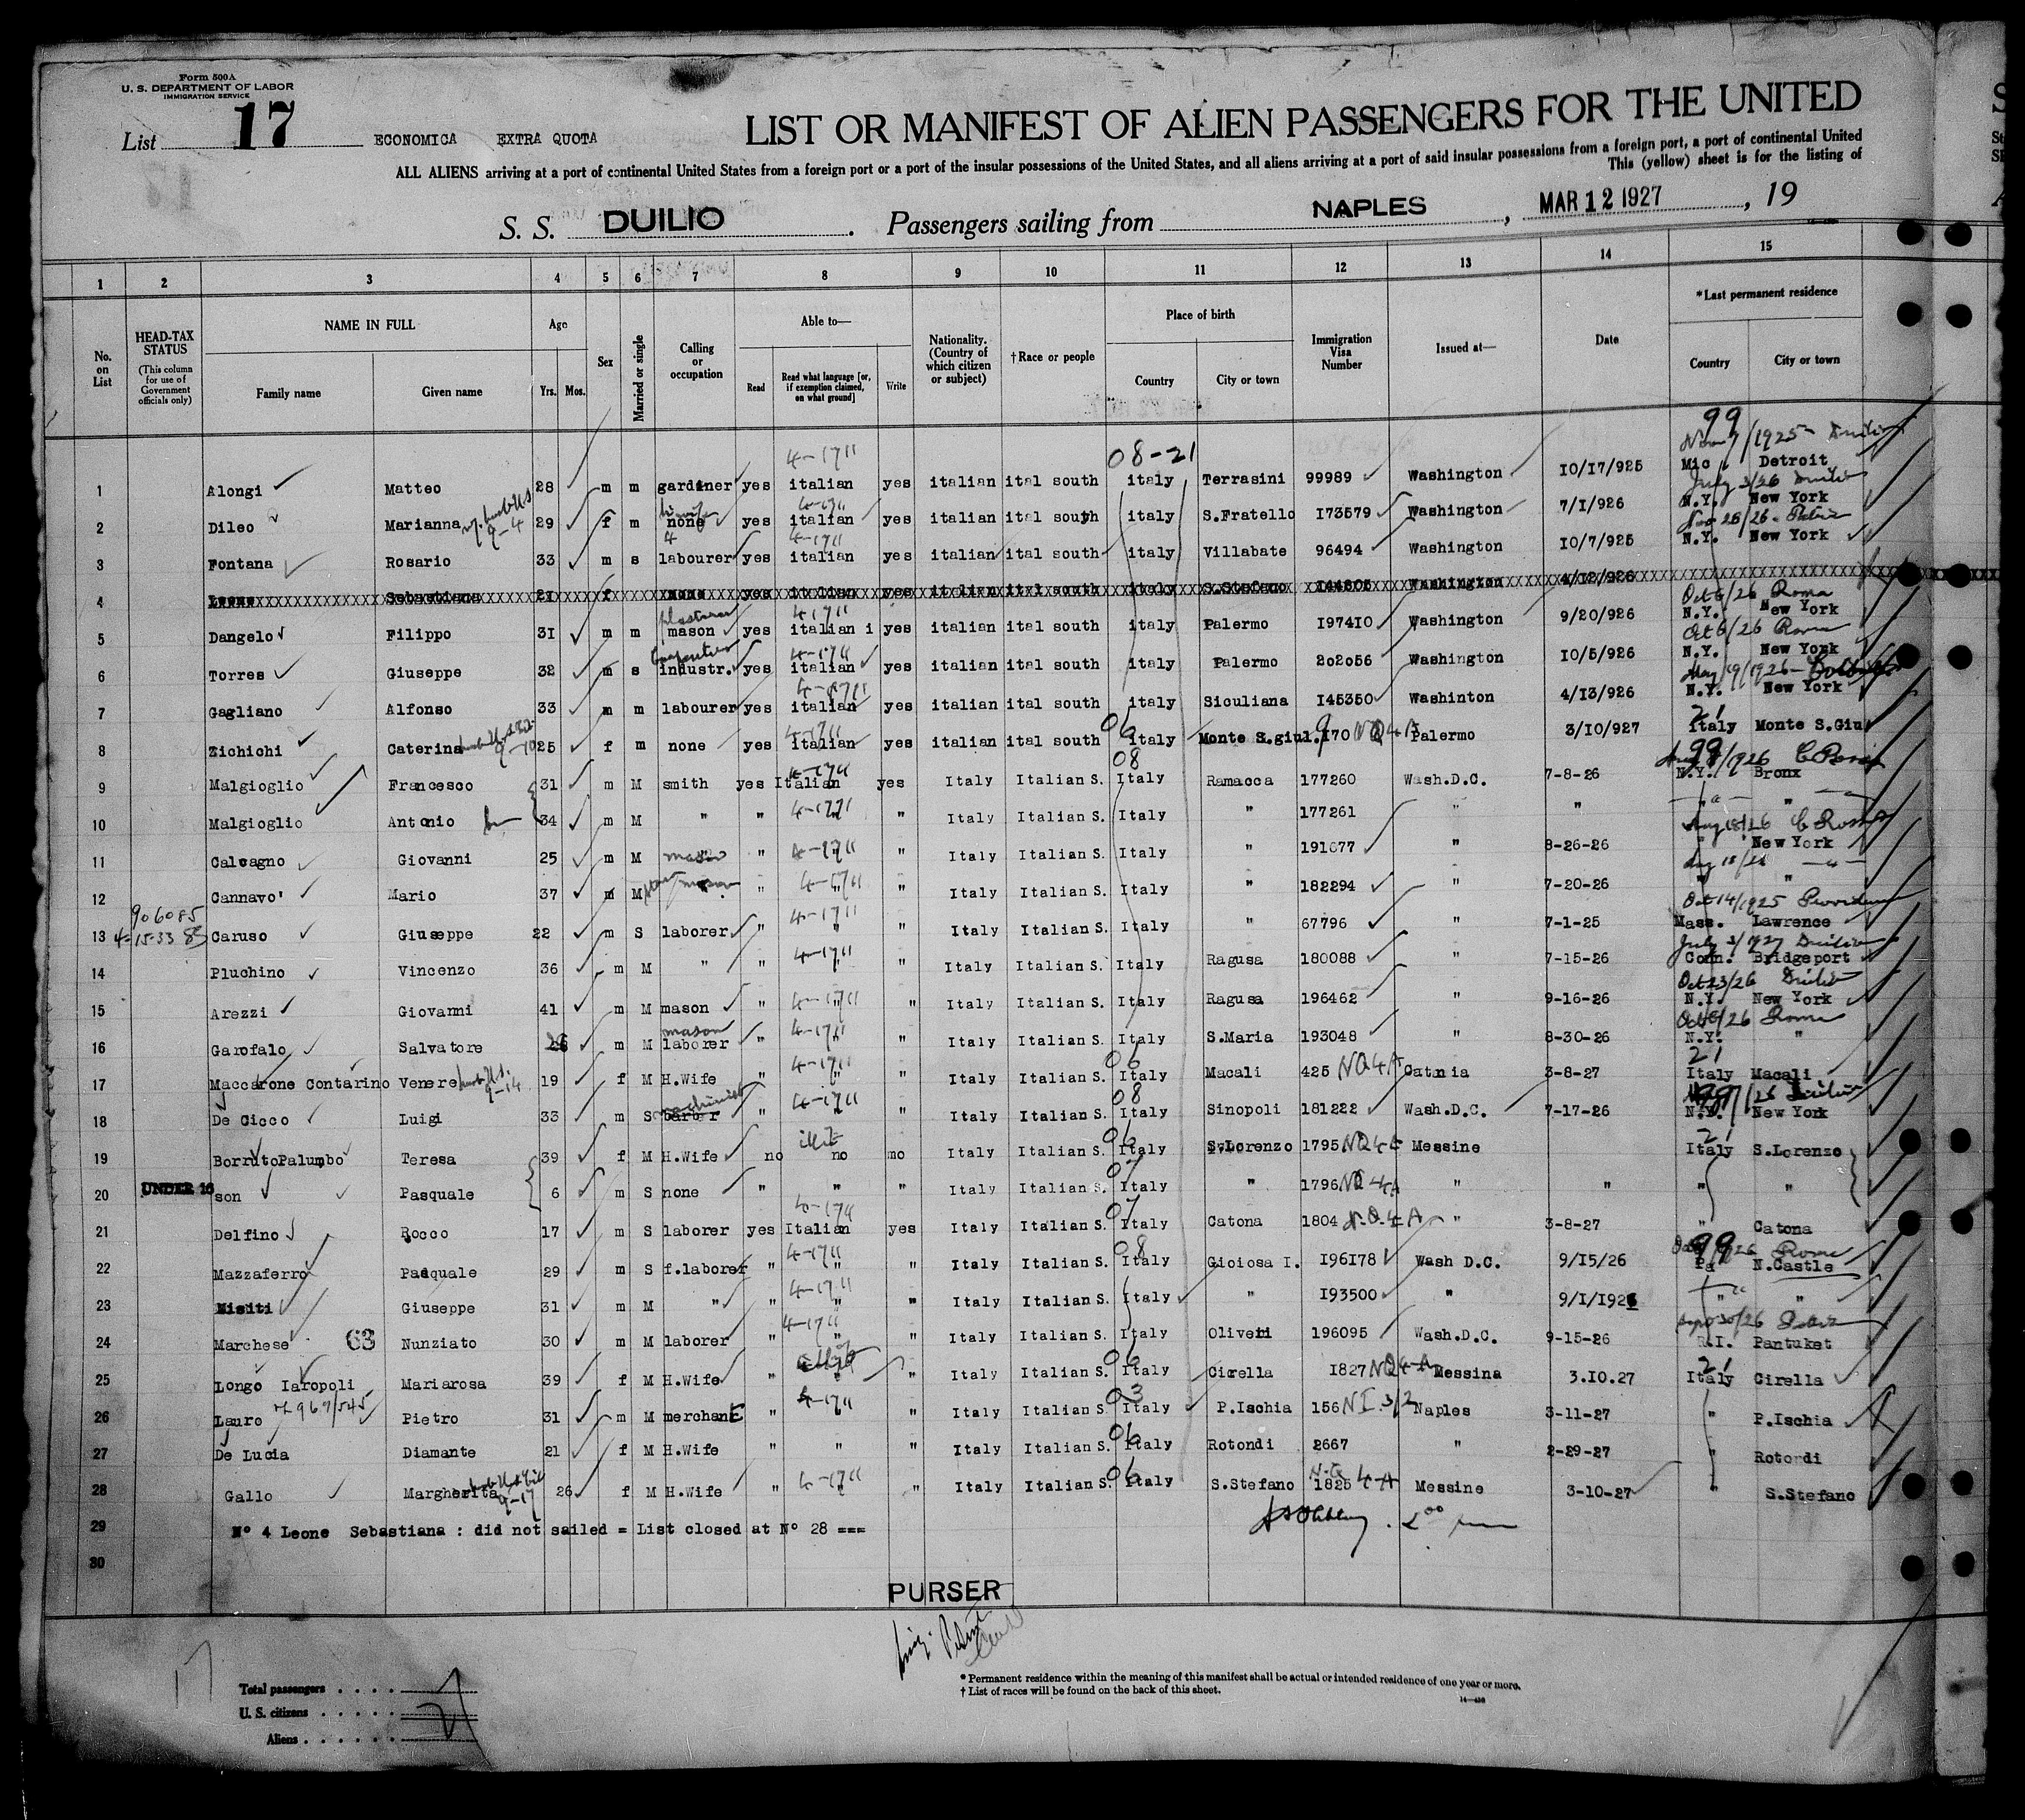 Form 500A
U. S. DEPARTMENT OF LABOR
IMMIGRATION SERVICE
List 17 ECONOMICA EXTRA QUOTA
LIST OR MANIFEST OF ALIEN PASSENGERS FOR THE UNITED
ALL ALIENS arriving at a port of continental United States from a foreign port or a port of the insular possessions of the United States, and all aliens arriving at a port of said insular possessions from a foreign port, a port of continental United
This (yellow) sheet is for the listing of
S. S. DUILIO. Passengers sailing from NAPLES, MAR 12 1927, 19
1 2 3 4 5 6 7 8 9 10 11 12 13 14 15
No. on List
HEAD-TAX STATUS (This column for use of Government officials only)
NAME IN FULL
Family name Given name
Age
Yrs. Mos.
Sex
Married or single
Calling or occupation
Able to—
Read Read what language [or, if exemption claimed, on what ground] Write
Nationality. (Country of which citizen or subject)
†Race or people
Place of birth
Country City or town
Immigration Visa Number
Issued at—
Date
*Last permanent residence
Country City or town
99
4-1711 08-21 Nov 7/1925 Duilio
1 Alongi Matteo 28 m m gardiner yes italian yes italian ital south italy Terrasini 99989 Washington 10/17/925 Mic Detroit
July 3/26 Duilio
2 Dileo Marianna 9-4 29 f m none yes italian yes italian ital south italy S.Fratello 173579 Washington 7/1/926 N.Y. New York
4 4-1711 Nov 26/26 Patria
3 Fontana Rosario 33 m s labourer yes italian yes italian ital south italy Villabate 96494 Washington 10/7/925 N.Y. New York
4 Leone Sebastiana 21 f none yes italian yes italian ital south italy S.Stefano 144805 Washington 4/12/926
plasterer 4-1711 Oct 6/26 Roma
5 Dangelo Filippo 31 m m mason yes italian i yes italian ital south italy Palermo 197410 Washington 9/20/926 N.Y. New York
4-1711 Oct 6/26 Roma
6 Torres Giuseppe 32 m s industr. yes italian yes italian ital south italy Palermo 202056 Washington 10/5/926 N.Y. New York
4-1711 May 19/1926
7 Gagliano Alfonso 33 m m labourer yes italian yes italian ital south italy Siculiana 145350 Washinton 4/13/926 N.Y. New York
4-1711 06 21
8 Zichichi Caterina 9-10 25 f m none yes italian yes italian ital south italy Monte S.giul. 170 NQ4A Palermo 3/10/927 Italy Monte S.Giul
4-1711 08 99
9 Malgioglio Francesco 31 m M smith yes Italian yes Italy Italian S. Italy Ramacca 177260 Wash.D.C. 7-8-26 N.Y. Bronx
10 Malgioglio Antonio 34 m M " " 4-1711 " Italy Italian S. Italy " 177261 " " " "
Aug 18/26 C Rosso
11 Calcagno Giovanni 25 m M mason " 4-1711 " Italy Italian S. Italy " 191677 " 8-26-26 " New York
Aug 18/26
12 Cannavo' Mario 37 m M mason " 4-1711 " Italy Italian S. Italy " 182294 " 7-20-26 " "
906085 Oct 14/1925 Providence
13 4-15-33 Caruso Giuseppe 22 m S laborer " 4-1711 " Italy Italian S. Italy " 67796 " 7-1-25 Mass. Lawrence
July 3/1927 Duilio
14 Pluchino Vincenzo 36 m M " " 4-1711 " Italy Italian S. Italy Ragusa 180088 " 7-15-26 Conn. Bridgeport
Oct 23/26 Duilio
15 Arezzi Giovanni 41 m M mason " 4-1711 " Italy Italian S. Italy Ragusa 196462 " 9-16-26 N.Y. New York
mason Oct 6/26 Roma
16 Garofalo Salvatore 26 m M laborer " 4-1711 " Italy Italian S. Italy S.Maria 193048 " 8-30-26 N.Y. "
06 21
17 Maccarone Contarino Venere 9-14 19 f M H.Wife " 4-1711 " Italy Italian S. Italy Macali 425 NQ4A Catnia 3-8-27 Italy Macali
machinist 08 99
18 De Cicco Luigi 33 m S barber " 4-1711 " Italy Italian S. Italy Sinopoli 181222 Wash.D.C. 7-17-26 N.Y. New York
illit 06 21
19 Borruto Palumbo Teresa 39 f M H.Wife no no mo Italy Italian S. Italy S.Lorenzo 1795 NQ4A Messine Italy S.Lorenzo
07
20 UNDER 16 son Pasquale 6 m S none " " " Italy Italian S. Italy " 1796 NQ4A " " " "
4-1711 07
21 Delfino Rocco 17 m S laborer yes Italian yes Italy Italian S. Italy Catona 1804 N.Q.4A " 3-8-27 " Catona
08 99 Roma
22 Mazzaferro Pasquale 29 m S f.laborer " 4-1711 " Italy Italian S. Italy Gioiosa I. 196178 Wash D.C. 9/15/26 Pa N.Castle
23 Misiti Giuseppe 31 m M " " 4-1711 " Italy Italian S. Italy " 193500 " 9/1/1926 " "
Sept 30/26
24 Marchese 63 Nunziato 30 m M laborer " 4-1711 " Italy Italian S. Italy Oliveti 196095 Wash.D.C. 9-15-26 R.I. Pantuket
06 21
25 Longo Iaropoli Mariarosa 39 f M H.Wife " " " Italy Italian S. Italy Cirella 1827 NQ4A Messina 3.10.27 Italy Cirella
4-1711 03
26 Lauro Pietro 31 m M merchanE " " " Italy Italian S. Italy P.Ischia 156 NI 3/2 Naples 3-11-27 " P.Ischia
06
27 De Lucia Diamante 21 f M H.Wife " " " Italy Italian S. Italy Rotondi 2667 " 2-29-27 " Rotordi
06
28 Gallo Margherita 9-17 26 f M H.Wife " 4-1711 " Italy Italian S. Italy S.Stefano 1825 4-A Messine 3-10-27 " S.Stefano
29 N° 4 Leone Sebastiana : did not sailed = List closed at N° 28 ===
30
PURSER
17
* Permanent residence within the meaning of this manifest shall be actual or intended residence of one year or more.
† List of races will be found on the back of this sheet.
Total passengers . . . .
U. S. citizens . . . . .
Aliens . . . . . .